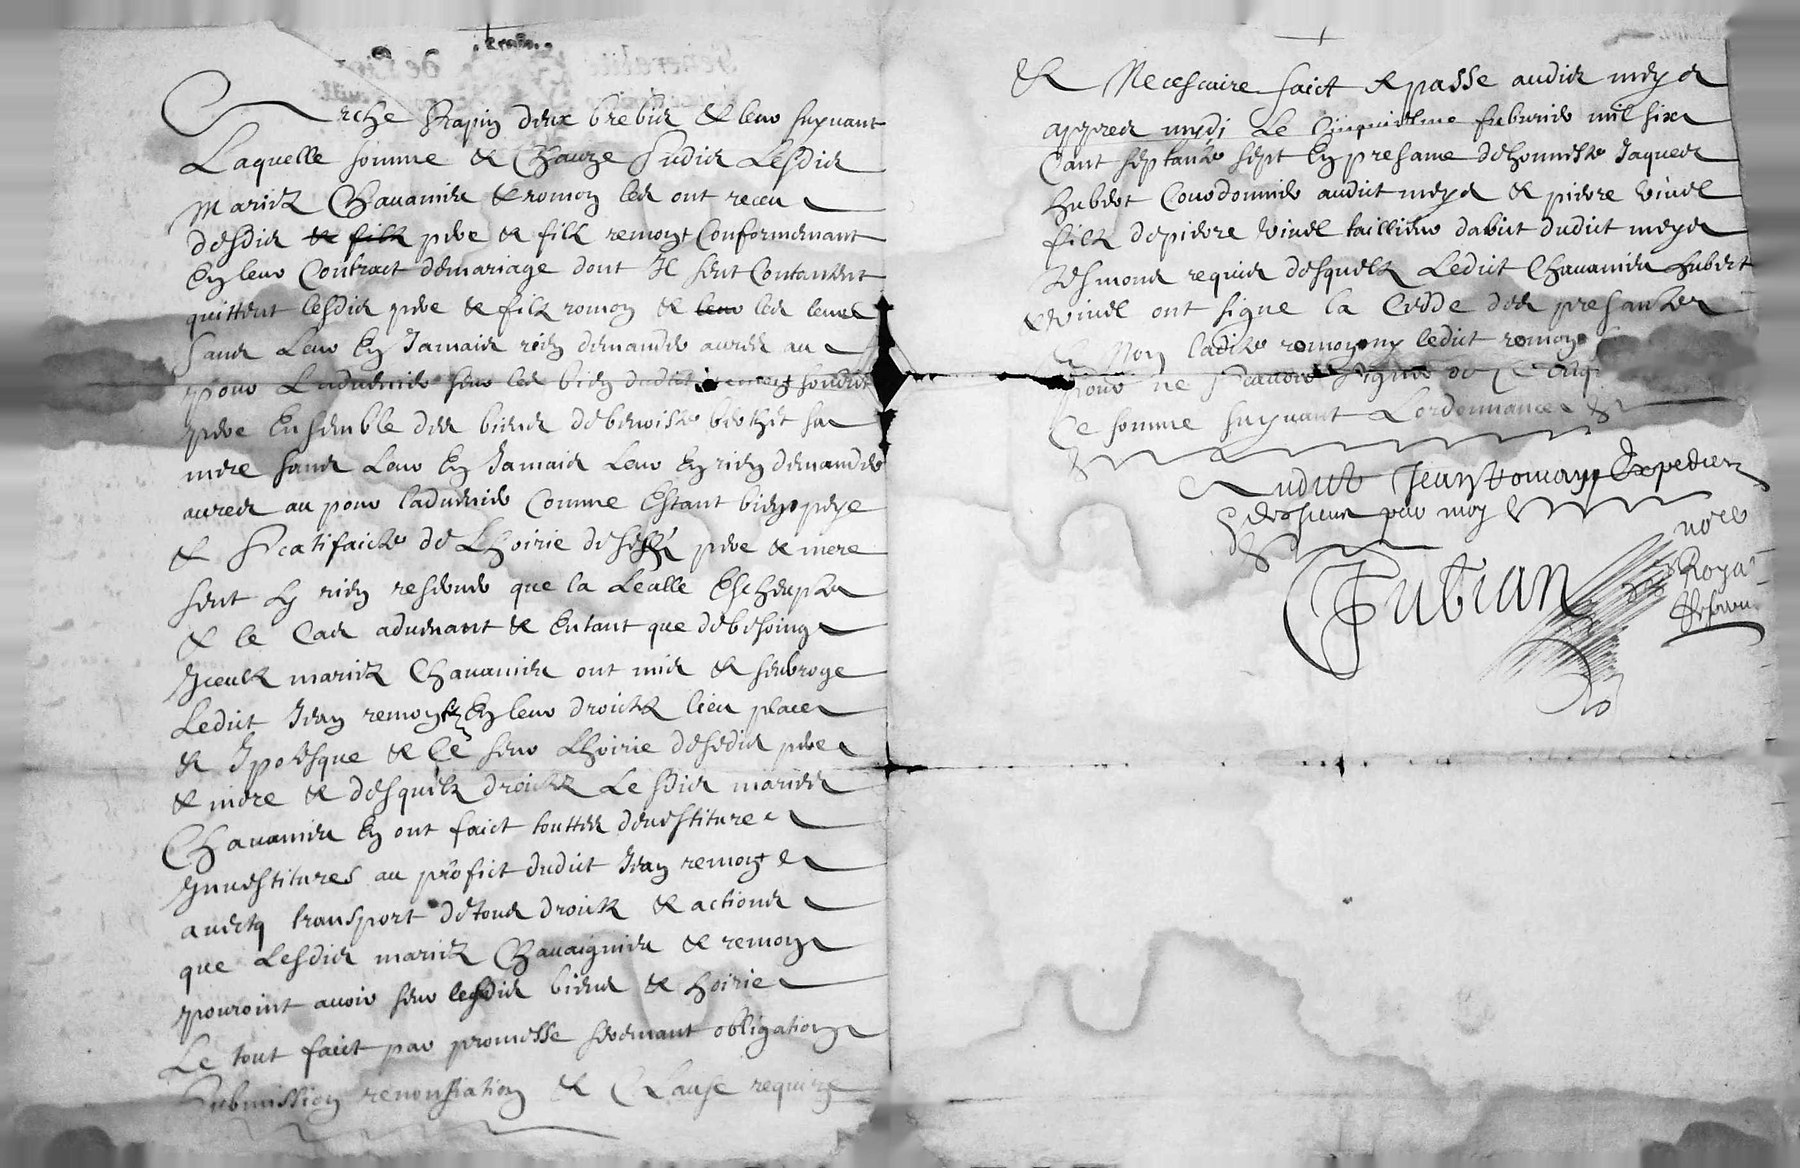 arche Rapin deux brebis & leur suyvant
Laquelle somme & Chauze susdis Lesdis
Mariés Chavanieu & romon les ont receu
desdis & filz pere & filz remont Conformemant
En leur Contract demariage dont Il sent Contantent
quittent lesdis pere & filz romon & leur les leurs
sans Leur En Jamais rien demander avres au
pour Ladvenir seur les bien dudict remont soudict
pere Ensemble des biens deberoiste berthet sa
mere sans Leur En Jamais Leur En rien demander
avres au pour ladvenir Comme Estant bien peye
& scatifaicte de Lhoirie desdis pere & mere
sent En rien reserver que la Lealle Escheupte
& le Cas advenant & Entant que debesoing
Yceulz mariez Chavanieu ont mis & subroge
Ledict Jean remont En leur droictz lieu place
& Ypotesque & Ce seur Lhoirie desedis pere
& mere & desquelz droictz Lesdis mariés
Chavanieu En ont faict touttes devestiture
Ynvestitures au profict dudict Jean remont &
avecq transport detous droictz & actions
que Lesdis mariez Chavaignieu & remon
pouroint avoir seur lesdis biens & hoirie
Le tout faict par promesse seremant obligation
submission renonsiation & Clause requize
& Necescaire faict & passe audis meys
appres mydi Le Cinquiesme feburier mil six
Cant septante sept En presance dehonneste Jaques
hubert Courdonnier audict meys & pierre vinel
filz depierre vinel taillieur dabict dudict meys
tesmoins requis desquelz Ledict Chavanieu hubert
& vinel ont signe la Cedde des presantes
& Non ladite remon ny ledict remon
pour ne scavoir signer de ce enq
Ce somme suyvant Lordonnance &
Audict Jean Romon Expedié
des sieur par moy
Fubian
nore
Royal